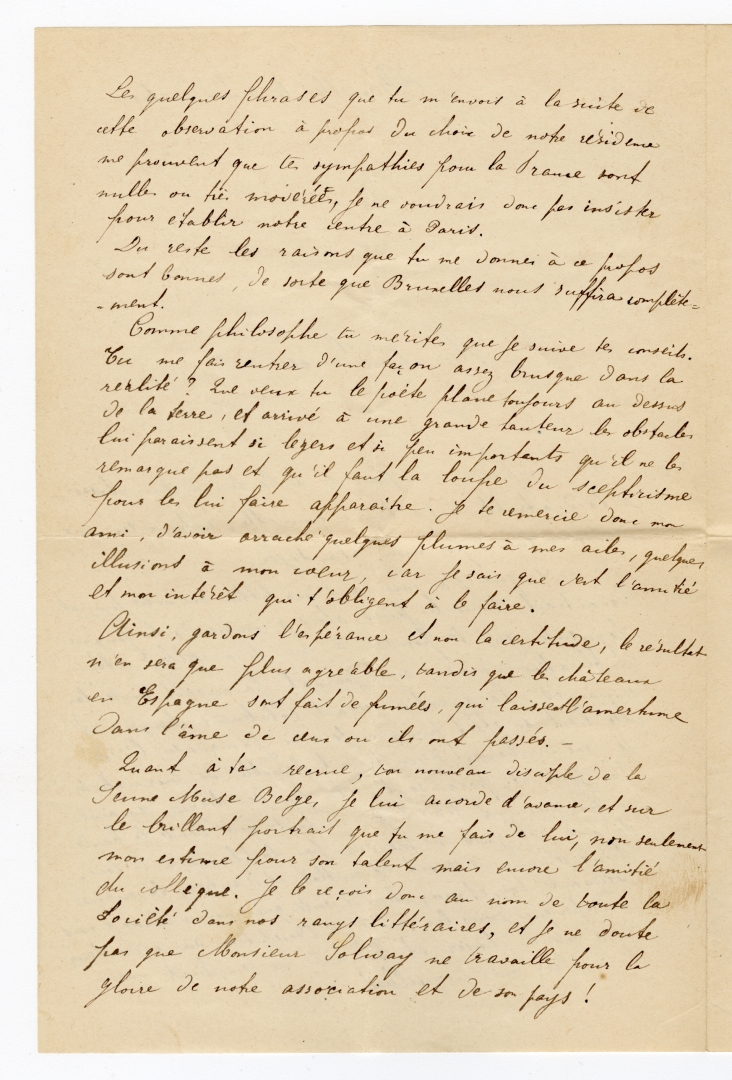 Les quelques phrases que tu m'envois à la suite de
cette observation à propos du choix de notre résidence
me prouvent que tes sympathies pour la France sont
nulles ou très modérées, je ne voudrais donc pas insister
pour etablir notre centre à Paris.
Du reste les raisons que tu me donnes à ce propos
sont bonnes, de sorte que Bruxelles nous suffira complète=
-ment.
Comme philosophe tu mérites que je suive tes conseils.
Tu me fais rentrer d'une façon assez brusque dans la
réalité? Que veux tu le poète plane toujours au dessus
de la terre, et arrivé à une grande hauteur les obstacles
lui paraissent si legers et si peu importants qu'il ne les
remarque pas et qu'il faut la loupe du scepticisme
pour les lui faire apparaître. Je te remercie donc mon
ami, d'avoir arraché quelques plumes à mes ailes, quelques
illusions à mon coeur, car je sais que c'est l'amitié
et mon intérêt qui t'obligent à le faire.
Ainsi, gardons l'espérance et non la certitude, le résultat
n'en sera que plus agréable, tandis que les châteaux
en Espagne sont fait de fumées, qui laissent l'amertume
dans l'âme de ceux ou ils ont passés. -
Quant à ta recrue, ton nouveau disciple de la
Jeune Muse Belge, je lui accorde d'avance, et sur
le brillant portrait que tu me fais de lui, non seulement
mon estime pour son talent mais encore l'amitié
du collègue. Je le reçois donc au nom de toute la
Société dans nos rangs littéraires, et je ne doute
pas que Monsieur Solway ne travaille pour la
gloire de notre association et de son pays!